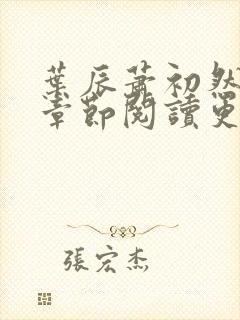 葉辰蕭初然
章節閱讀更
張宏杰